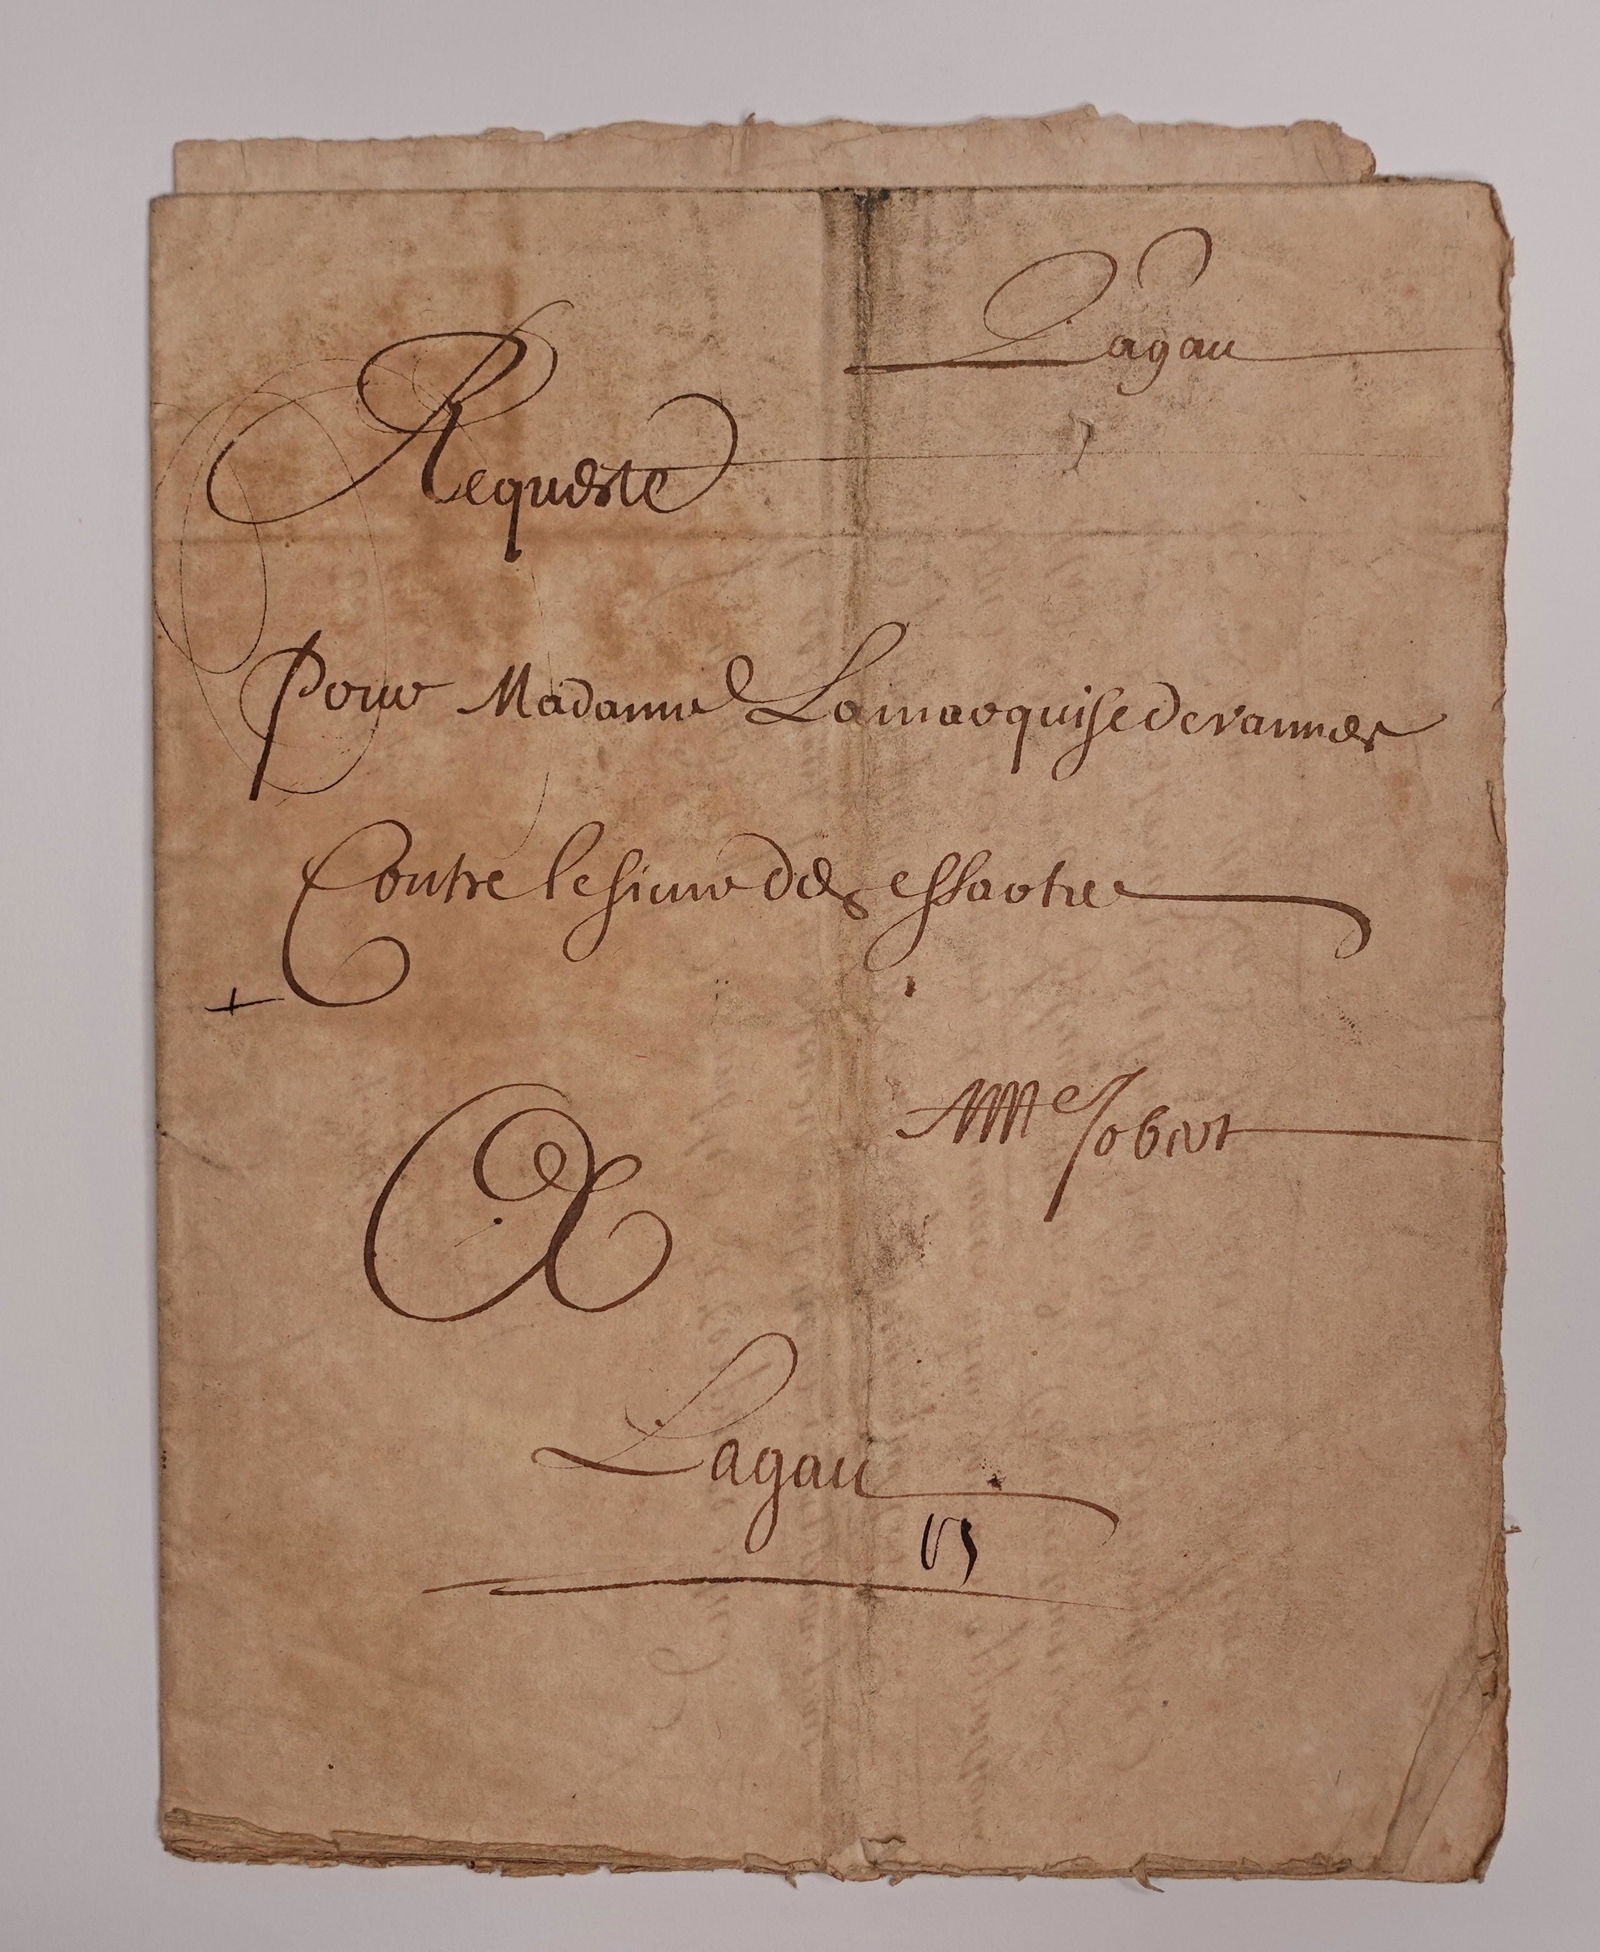 Lagau
Requeste
Pour Madame Lamarquise de vannes
Contre le sieur des essartre
MMe Jobert
Lagau